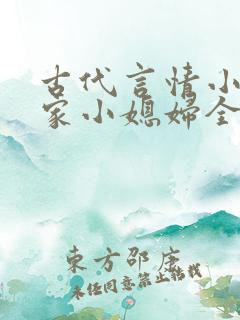 古代言情小
家小媳妇全
東方邵康
未经同意禁止转载